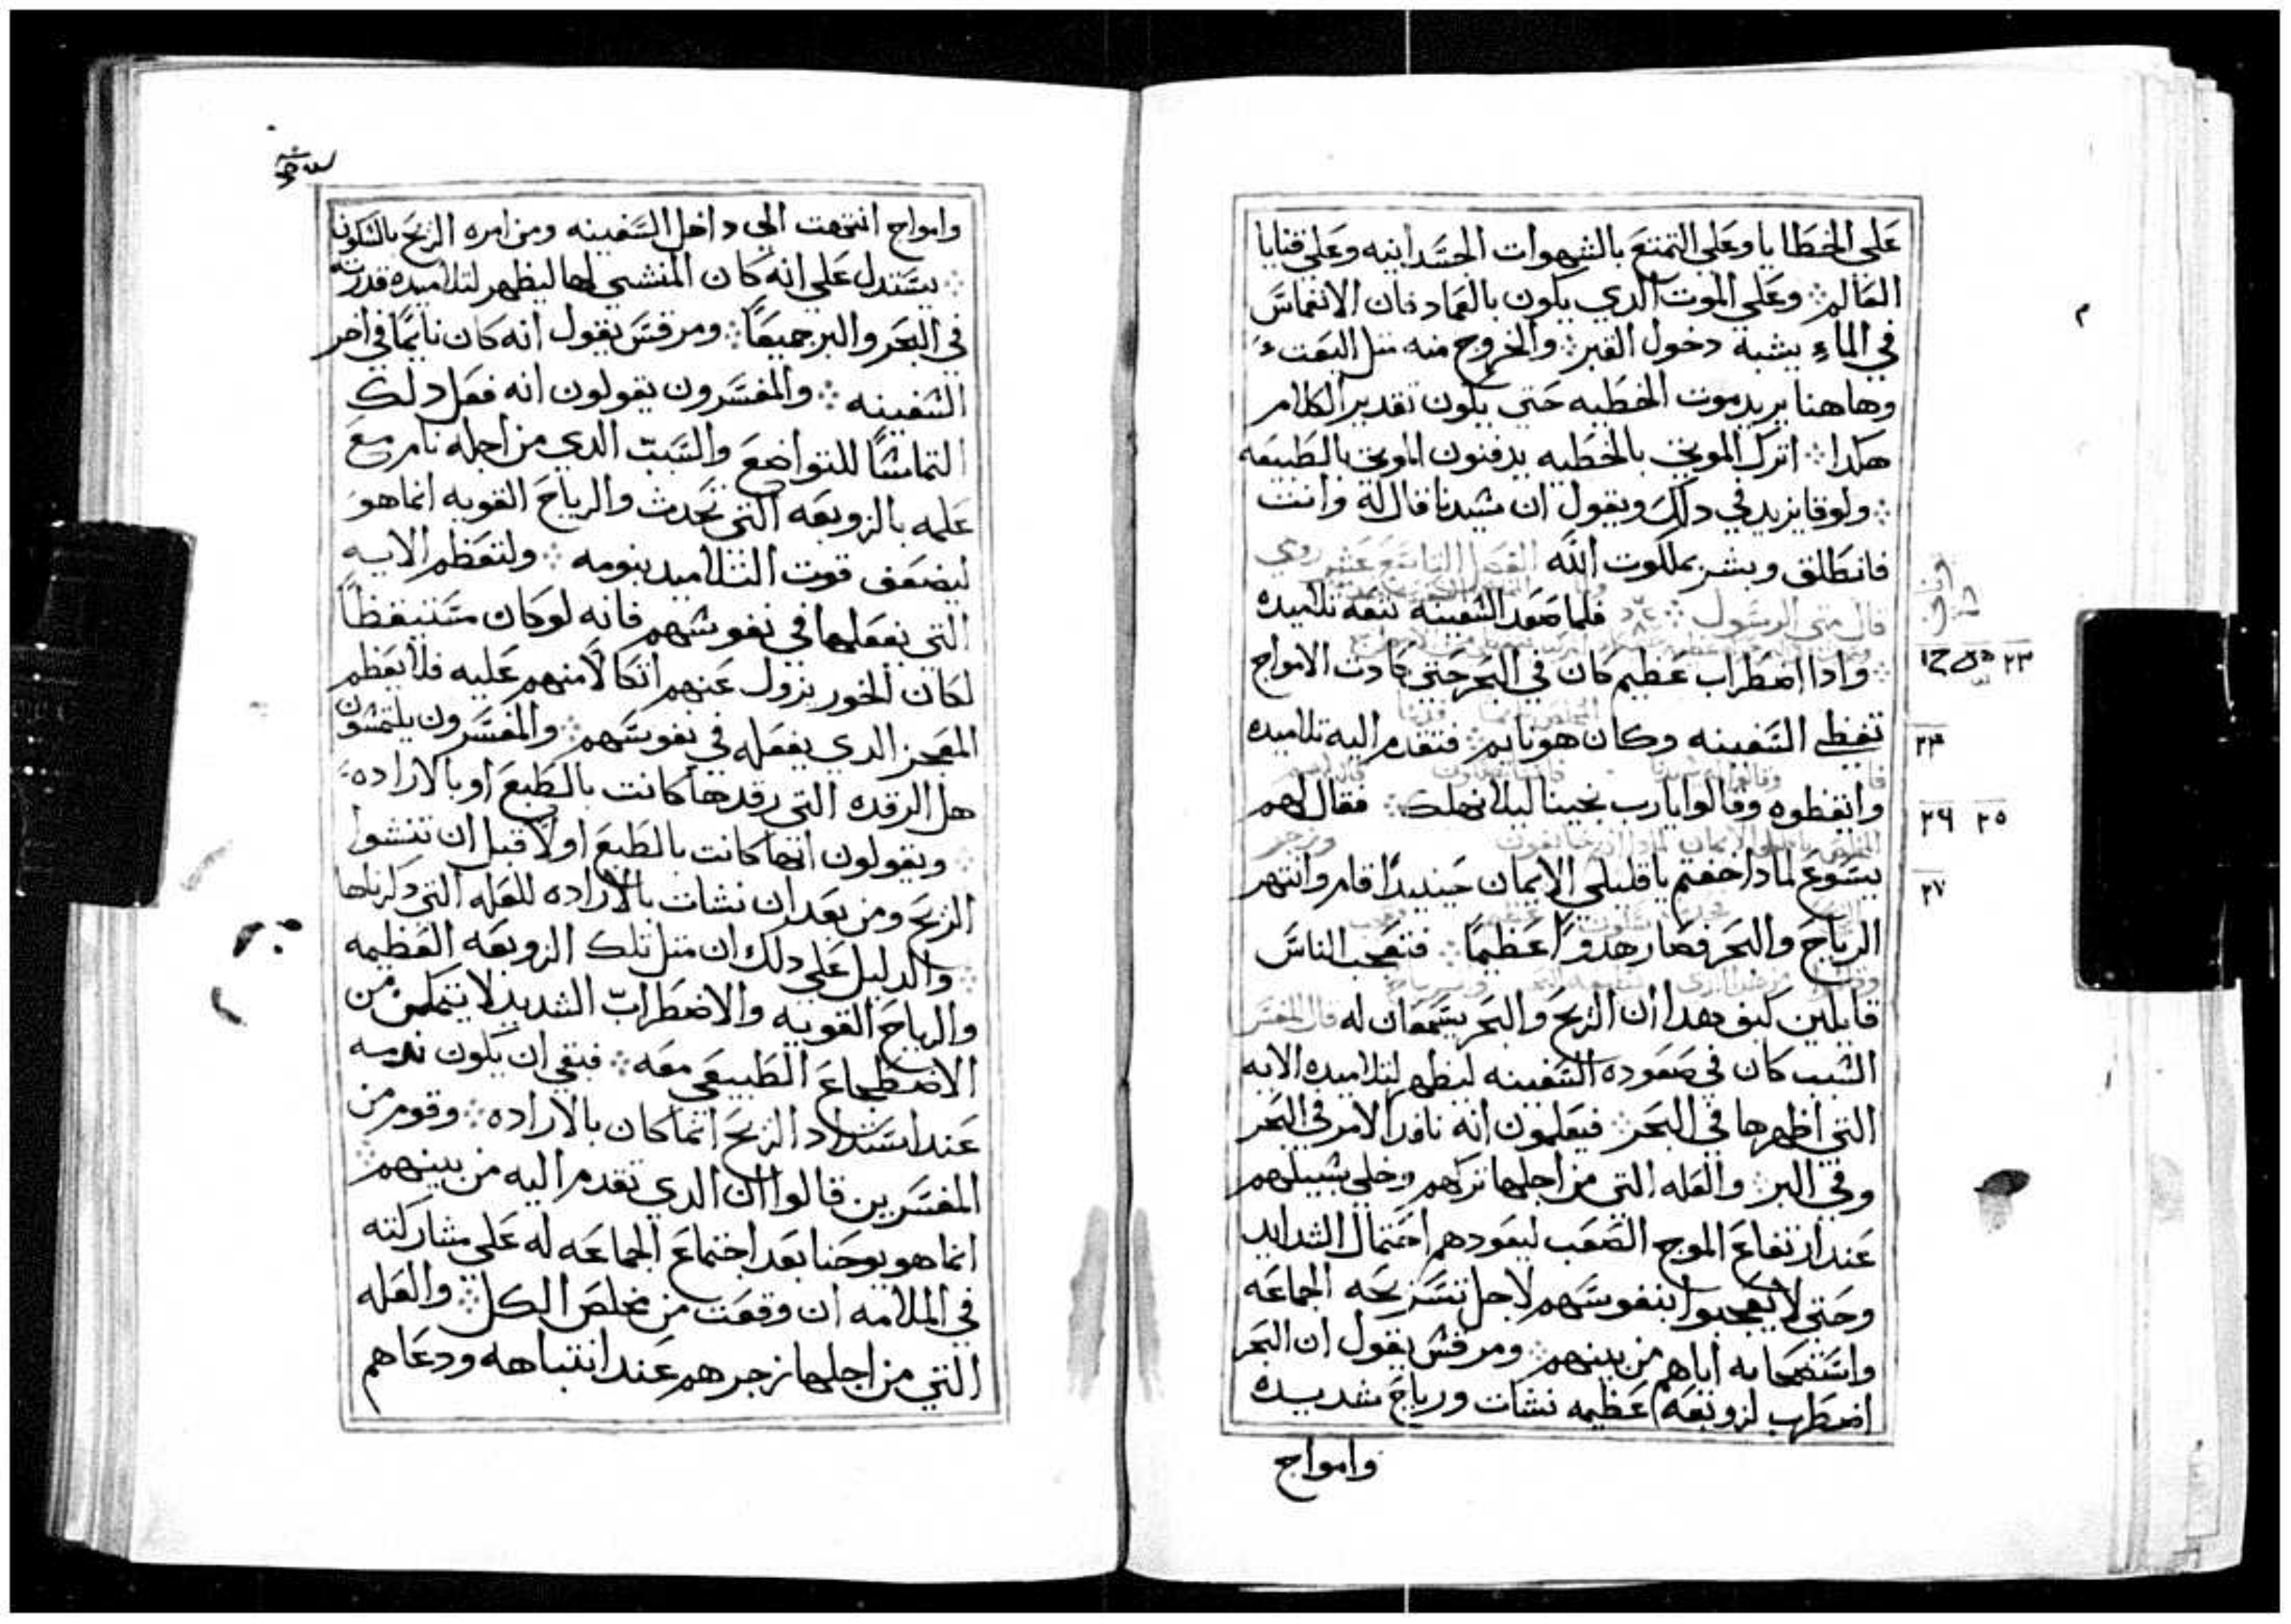 على الخطايا وعلى التمتع بالشهوات الجسدانيه وعلى قنايا
العالم ※ وعلى الموت الدي يكون بالعماد فان الانغماس
في الماء يشبه دخول القبر ※ والخروج منه مثل البعث
وهاهنا يريد موت الخطيه حتى يكون تقدير الكلام
هكدا ※ اترك الموتى بالخطيه يدفنون الموتى بالطبيعه
※ ولوقا يزيد في دلك ويقول ان سيدنا قال له وانت
فانطلق وبشر بملكوت الله الفصل التاسع عشر روي
قال متى الرسول ※ فلما صعد السفينه تبعه تلاميده
٢٣
※ وادا اضطراب عظيم كان في البحر حتى كادت الامواج
تغطي السفينه وكان هو نايم ※ فتقدم اليه تلاميده
٢٤
وايقظوه وقالوا يارب نجينا ليلا نهلك ※ فقال لهم
٢٥ ٢٦
يسوع لمادا خفتم يا قليلي الايمان حينيدا قام وانتهر
٢٧
الرياح والبحر فصار هدوا عظيما ※ فتعجب الناس
قايلين كيف هدا ان الريح والبحر يسمعان له قال المفسر
السبب كان في صعوده السفينه ليظهر لتلاميده الايه
التي اظهرها في البحر ※ فيعلمون انه نافد الامر في البحر
وفي البر ※ والعله التي من اجلها تركهم وخلى سبيلهم
عند ارتفاع الموج الصعب ليعودهم احتمال الشدايد
وحتى لا يعجبوا بنفوسهم لاجل تسريحه الجماعه
واستصحابه اياهم من بينهم ※ ومرقس يقول ان البحر
اضطرب لزوبعه عظيمه نشات ورياح شديده
وامواج
وامواج انتهت الى داخل السفينه ومن امره الريح بالسكون
※ يستدل على انه كان المنشي لها ليظهر لتلاميده قدرته
في البحر والبر جميعا ※ ومرقس يقول انه كان نايما في اخر
السفينه ※ والمفسرون يقولون انه فعل دلك
التماسا للتواضع والسبب الدي من اجله نام مع
علمه بالزوبعه التي تحدث والرياح القويه انما هو
ليضعف قوت التلاميد بنومه ※ ولتعظم الايه
التي يفعلها في نفوسهم فانه لو كان مستيقظا
لكان الخور يزول عنهم اتكالا منهم عليه فلا يعظم
المعجز الدي يفعله في نفوسهم ※ والمفسرون يلتمسون
هل الرقده التي رقدها كانت بالطبع او بالاراده
※ ويقولون انها كانت بالطبع اولا قبل ان تنشوا
الريح ومن بعد ان نشات بالاراده للعله التي دكرناها
※ والدليل على دلك ان مثل تلك الزوبعه العظيمه
والرياح القويه والاضطراب الشديد لا يتمكن من
الاضطجاع الطبيعي معه ※ فبقي ان يكون نومه
عند اشتداد الريح انما كان بالاراده ※ وقوم من
المفسرين قالوا ان الدي تقدم اليه من بينهم ※
انما هو يوحنا بعد اجتماع الجماعه له على مشاركته
في الملامه ان وقعت من مخلص الكل ※ والعله
التي من اجلها زجرهم عند انتباهه ودعاهم